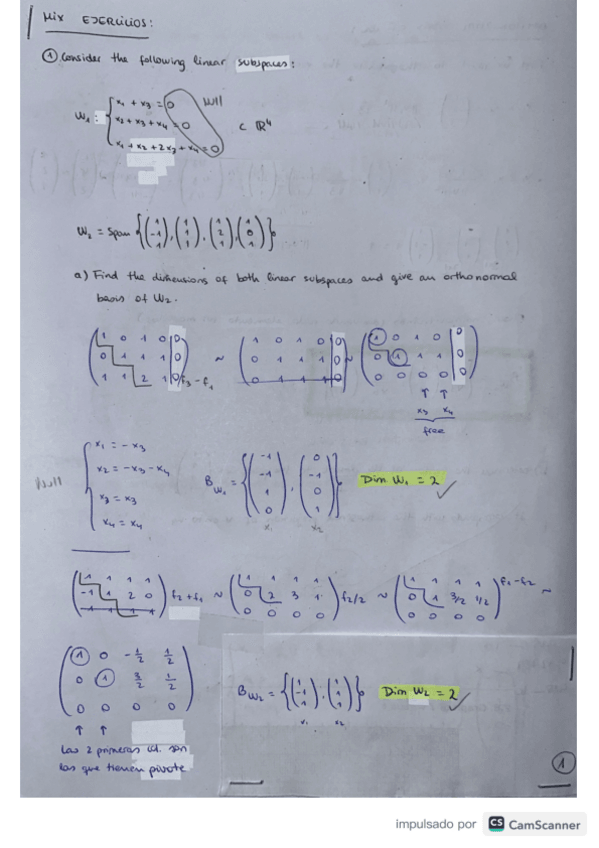 Mix EJERCICIOS:
① Consider the following linear subspaces:
W₁: { x₁ + x₃ = 0
x₂ + x₃ + x₄ = 0
x₁ + x₂ + 2x₃ + x₄ = 0
Null
⊂ ℝ⁴
W₂ = Span {(1 -1 1), (1 1 1), (1 2 1), (1 0 1)}
a) Find the dimensions of both linear subspaces and give an orthonormal
basis of W₂.
(1 0 1 0 | 0
0 1 1 1 | 0
1 1 2 1 | 0) f₃-f₁ ~ (1 0 1 0 0
0 1 1 1 0
0 1 1 1 0) ~ (1 0 1 0 0
0 1 1 1 0
0 0 0 0 0)
↑ ↑
x₃ x₄
free
Null
{ x₁ = -x₃
x₂ = -x₃ - x₄
x₃ = x₃
x₄ = x₄
B W₁ = {(-1 -1 1 0), (0 -1 0 1)} Dim W₁ = 2 ✓
x₁ x₂
(1 1 1 1
-1 1 2 0
1 1 1 1) f₂+f₁ ~ (1 1 1 1
0 2 3 1
0 0 0 0) f₂/2 ~ (1 1 1 1
0 1 3/2 1/2
0 0 0 0) f₁-f₂ ~
(1 0 -1/2 1/2
0 1 3/2 1/2
0 0 0 0)
↑ ↑
Las 2 primeras col. son
las que tienen pivote
B W₂ = {(1 -1 1), (1 1 1)} Dim W₂ = 2 ✓
x₁ x₂
①
impulsado por CS CamScanner